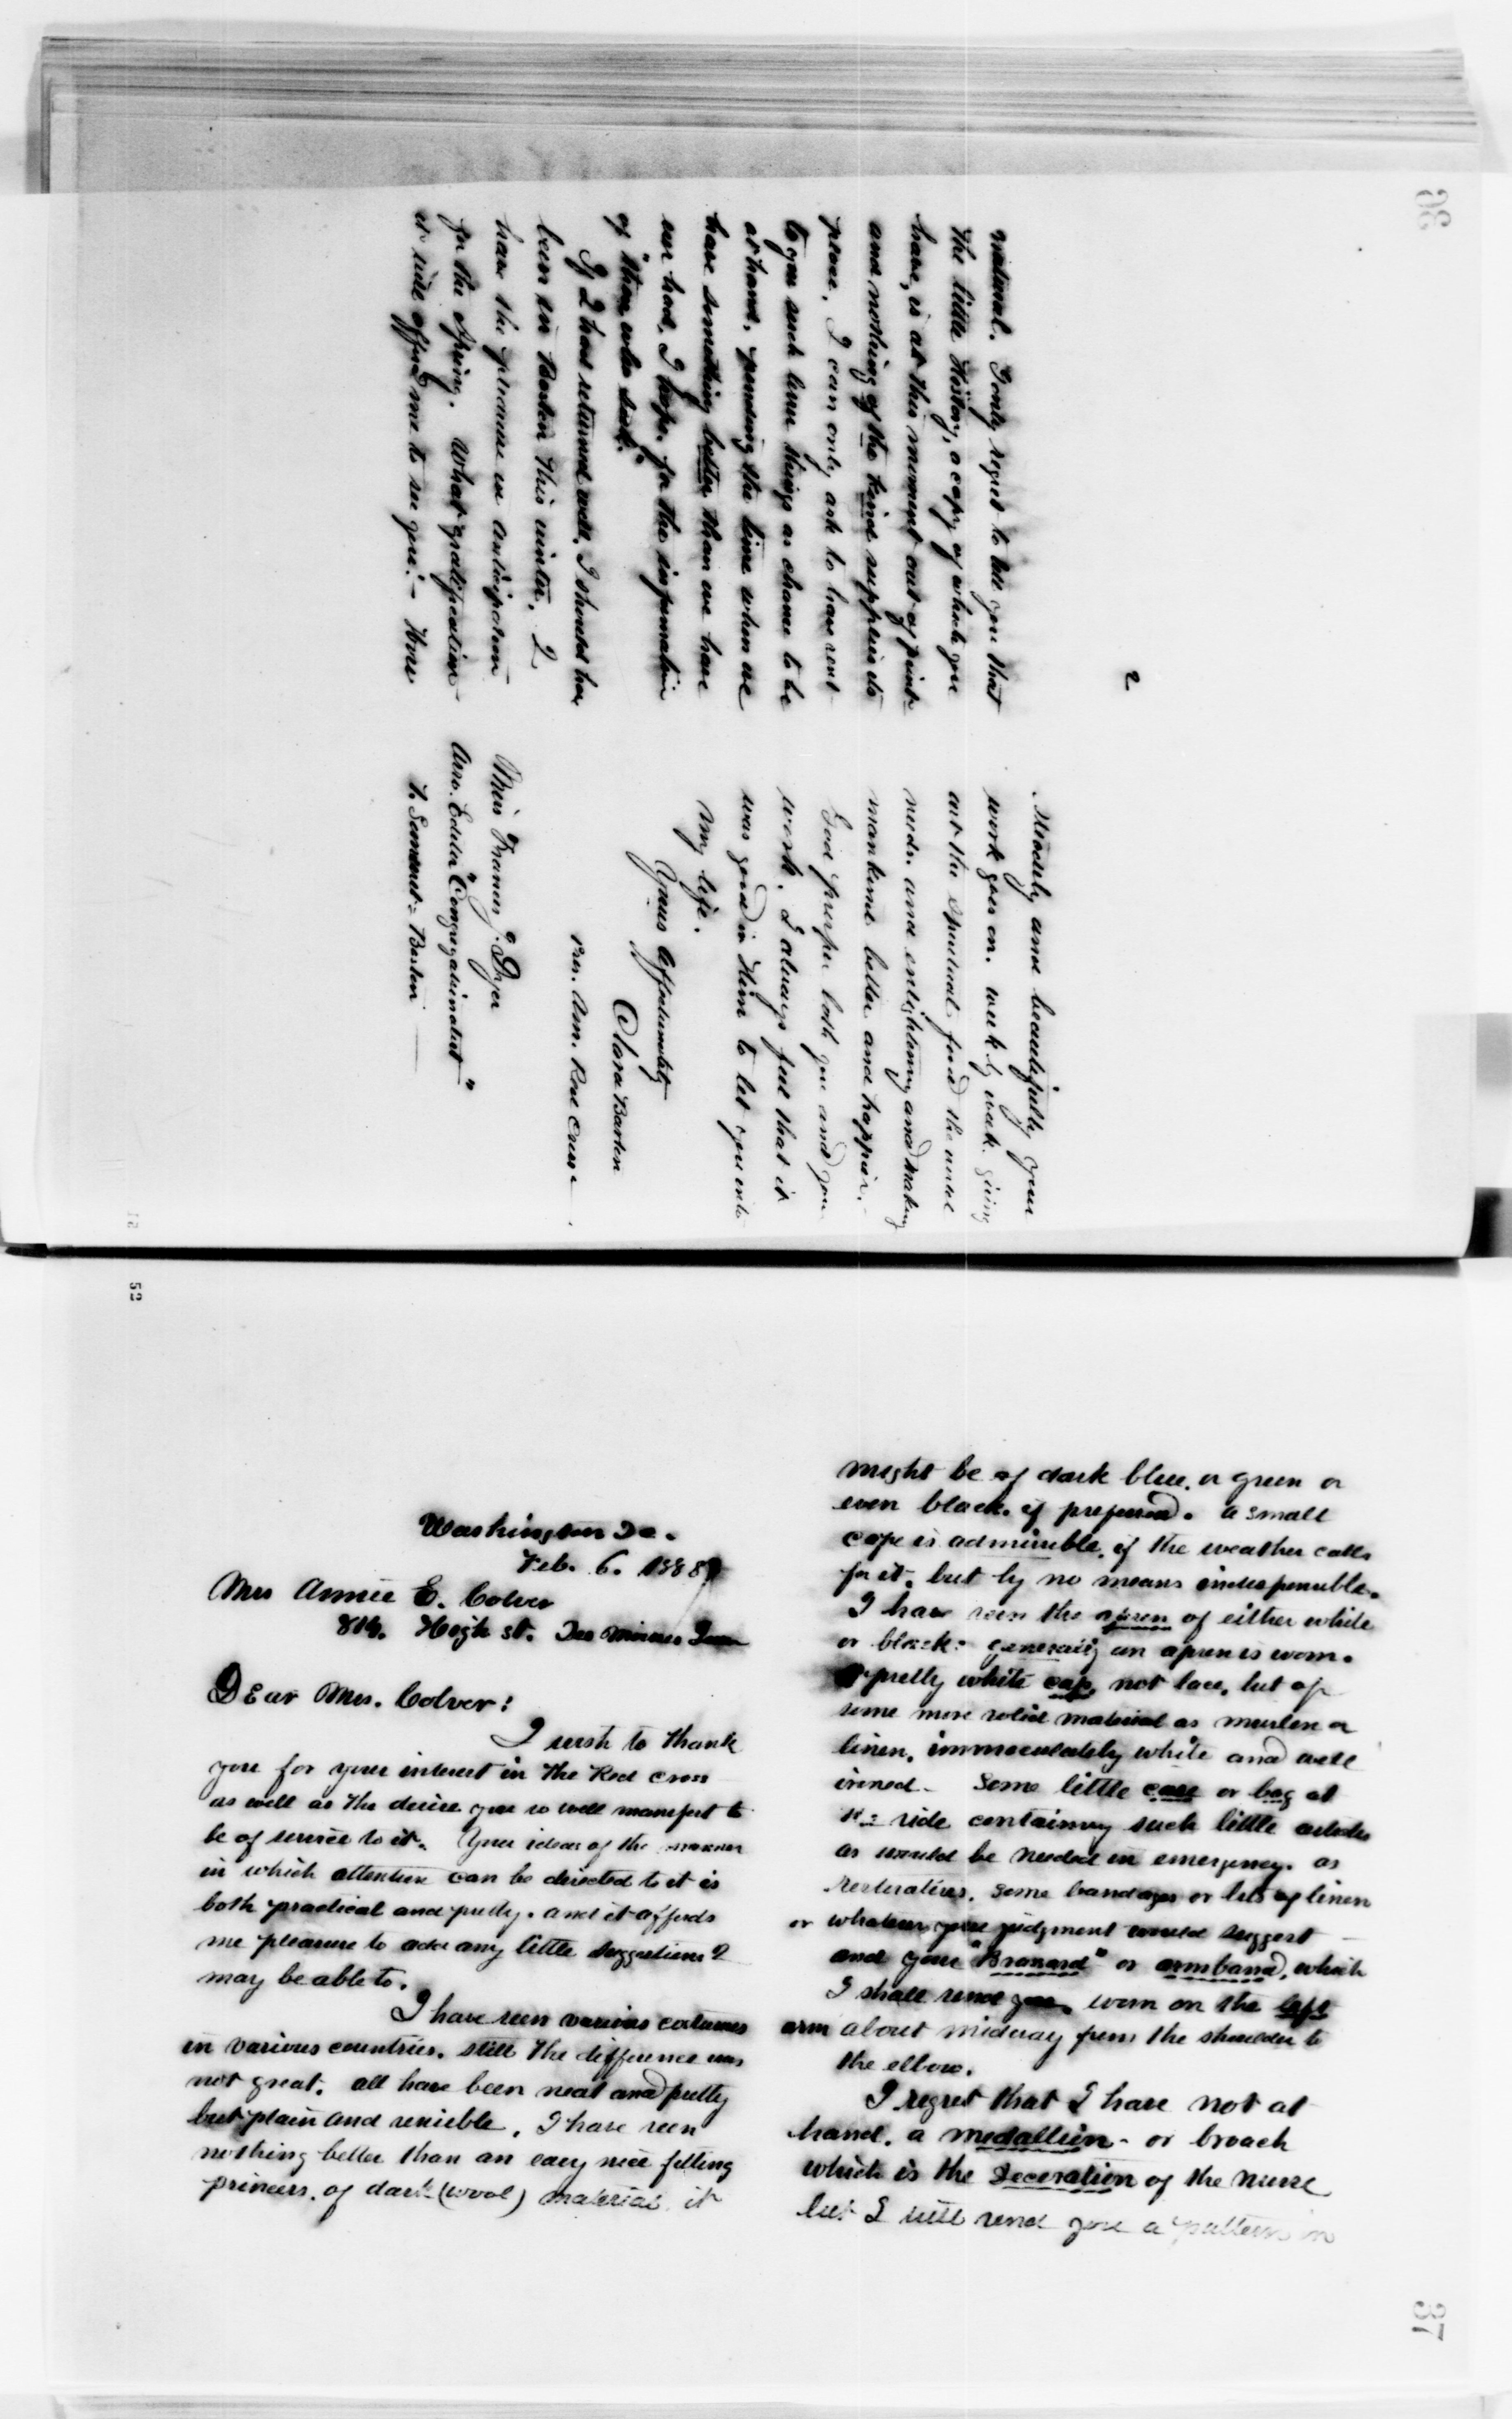 36
2
national. I only regret to tell you that
the little History, a copy of which you
have, is at this moment out of print
and nothing of the kind supplies its
place. I can only ask to have sent
to you such lesser things as chance to be
at hand, pending the time when we
have something better than we have
ever had, I hope, for the information
of "those who seek."
If I had returned well, I should have
been in Boston this winter. I
have the pleasure in anticipation
for the Spring. What gratification
it will afford me to see you! - How
steadily and beautifully your
work goes on. week by week. giving
out the spiritual food the
needs. and enlightening and making
mankind better and happier. -
God prosper both you and your
work. I always feel that it
was good in Him to let you into
my life.
Yours affectionately
Clara Barton
Pres. Am. Red Cross
Miss Frances J. Dyer
Asso. Editor "Congregationalist"
1. Somerset - Boston
52
Washington Dc.
Feb. 6. 1888
Mrs Annie E. Colver
816. High st. Des Moines Iowa
Dear Mrs. Colver:
I wish to thank
you for your interest in the Red Cross
as well as the desire you so well manifest to
be of service to it. Your ideas of the manner
in which attention can be directed to it is
both practical and pretty. and it affords
me pleasure to add any little suggestions I
may be able to.
I have seen various costumes
in various countries. still the difference was
not great. all have been neat and pretty
but plain and sensible. I have seen
nothing better than an easy nice fitting
princess. of dark (wool) material it
might be of dark blue. or green or
even black. if preferred. a small
cape is admissible. if the weather calls
for it. but by no means indispensible.
I have seen the apron of either white
or black: generally an apron is worn.
A pretty white cap, not lace, but of
some more solid material as muslin or
linen, immaculately white and well
ironed - Some little case or bag at
the side containing such little articles
as would be needed in emergency. as
restoratives. some bandages or bits of linen
or whatever your judgment would suggest -
and your "Brassard" or armband, which
I shall send you, worn on the left
arm about midway from the shoulder to
the elbow.
I regret that I have not at
hand. a medallion - or broach
which is the Decoration of the nurse
but I will send you a pattern in
37